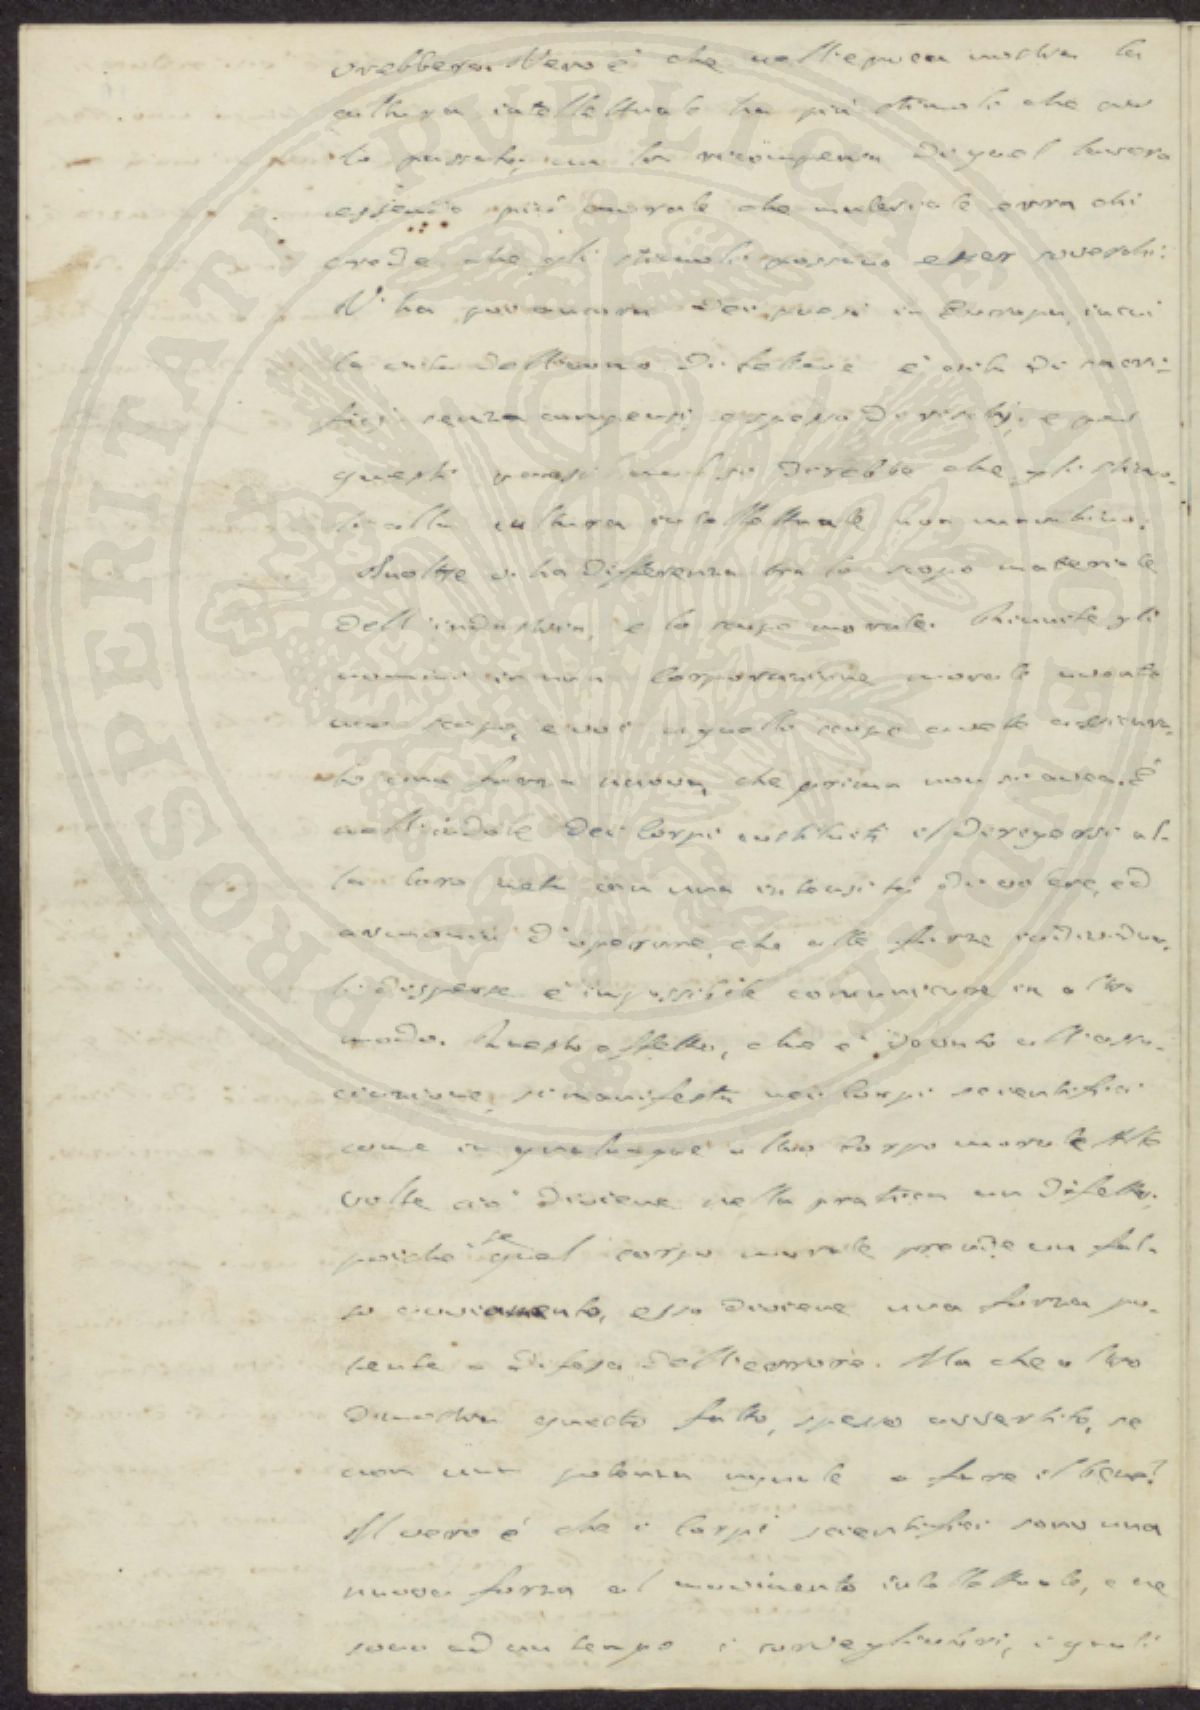 vrebbero. Vero è che nell'epoca nostra la
cultura intellettuale ha più stimoli che per
lo passato; ma la ricompensa di quel lavoro
essendo più morale che materiale erra chi
crede che gli stimoli possano esser soverchi.
V'ha poi ancora dei paesi in Europa, in cui
la vita dell'uomo di lettere è vita di sacri-
fici senza compensi e spesso di rischj, e per
questi paesi mal si direbbe che gli stimo-
li alla cultura intellettuale non manchino.
Inoltre v'ha differenza tra lo scopo materiale
dell'industria, e lo scopo morale. Riunite gli
uomini in una Corporazione morale avente
uno scopo, e voi a quello scopo avete assicura-
to una forza nuova, che prima non si avea. È
nell'indole dei Corpi costituiti il dirigersi al-
la loro meta con una intensità di volere, ed
armonia d'operare, che alle forze individua-
li disperse è impossibile comunicare in altro
modo. Questo effetto, che è dovuto all'asso-
ciazione, si manifesta nei Corpi scientifici
come in qualunque altro Corpo morale. Alle
volte ciò diviene nella pratica un difetto,
poiché se quel corpo morale prende un fal-
so avviamento, esso diviene una forza po-
tente a difesa dell'errore. Ma che altro
dimostra questo fatto, spesso avvertito, se
non una potenza uguale a fare il bene?
Il vero è che i Corpi scientifici sono una
nuova forza al movimento intellettuale, e ne
sono ad un tempo i sorvegliatori, i quali
PROSPERITATI PUBLICAE AUGENDAE